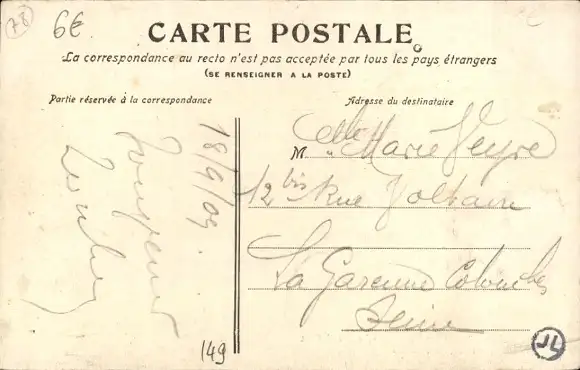 78
6€
CARTE POSTALE
La correspondance au recto n'est pas acceptée par tous les pays étrangers
(SE RENSEIGNER A LA POSTE)
Partie réservée à la correspondance
Adresse du destinataire
18/9/09.
Melle Marie Veyre
12 bis Rue Voltaire
La Garenne Colombes
Seine
149
JL